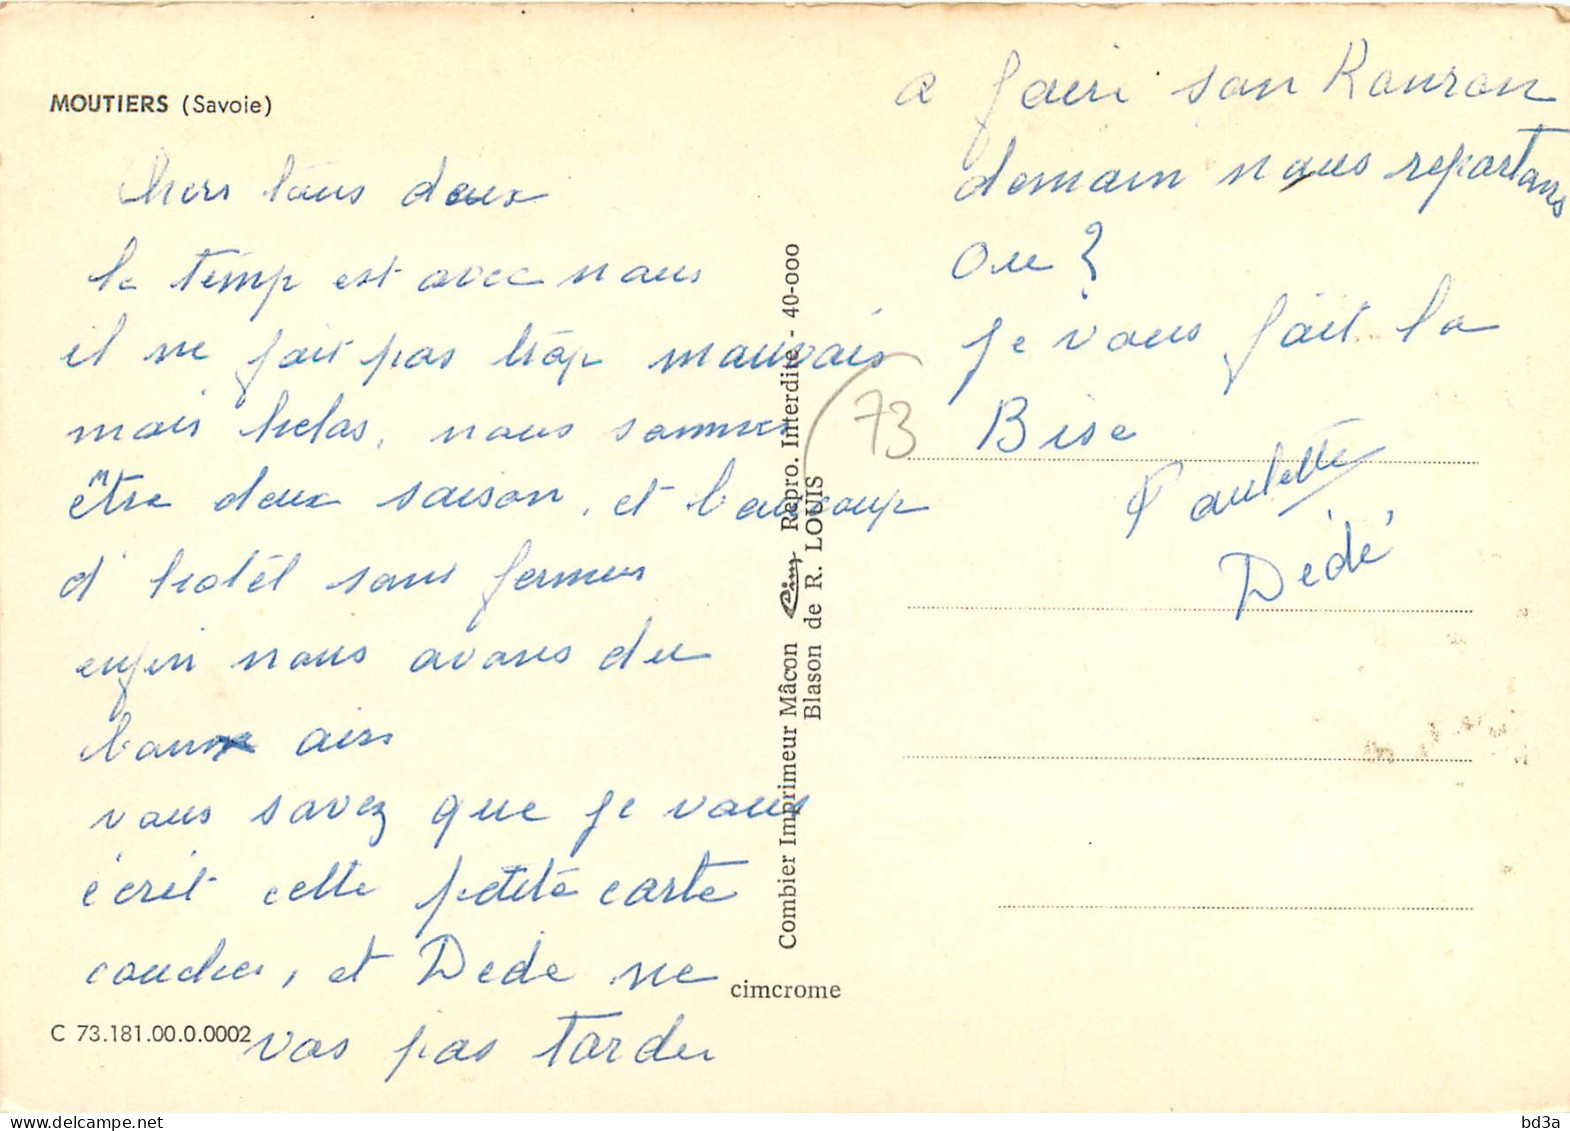 MOUTIERS (Savoie)
Chers tous deux
le temp est avec nous
il ne fait pas trop mauvais
mais helas, nous sommes
être deux saison, et beaucoup
d'hotêl sont fermer
enfin nous avons du
bonne air
vous savez que je vous
écrit cette petite carte
coucher, et Dede ne
vas pas tarder
C 73.181.00.0.0002
a faire son Ronron
demain nous repartons
ou ?
je vous fait la
Bise
Paulette
Dédé
73
Combier Imprimeur Mâcon Cim Repro. Interdite - 40-000
Blason de R. LOUIS
cimcrome
bd3a